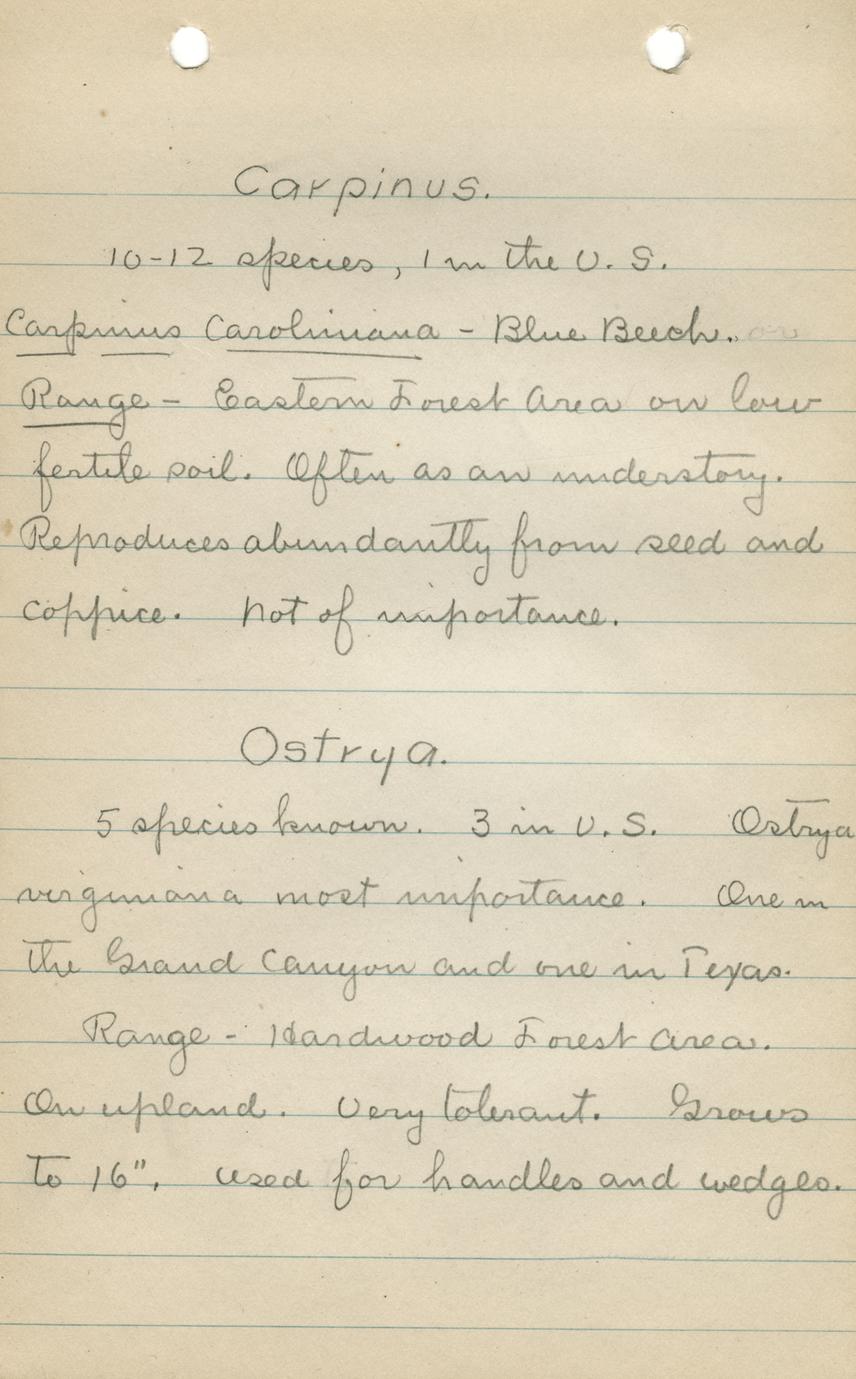 Carpinus.
10-12 species, 1 in the U. S.
Carpinus Caroliniana - Blue Beech. on
Range - Eastern Forest Area on low
fertile soil. Often as an understory.
Reproduces abundantly from seed and
coppice. Not of importance.
Ostrya.
5 species known. 3 in U. S. Ostrya
virginiana most importance. One in
the Grand Canyon and one in Texas.
Range - Hardwood Forest area.
On upland. Very tolerant. Grows
to 16". used for handles and wedges.